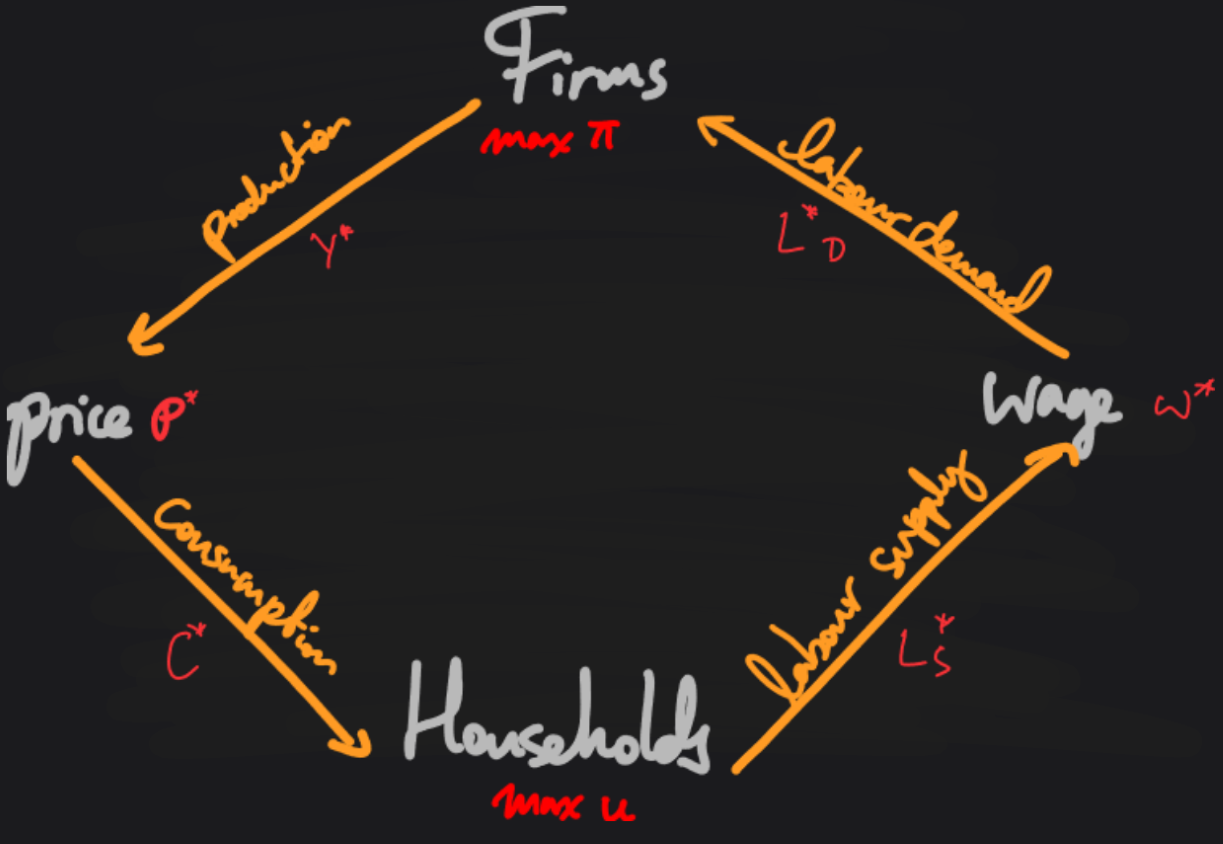 Firms
max π
production
Y*
labour demand
L*D
price P*
Wage w*
Consumption
C*
labour supply
L*S
Households
max u